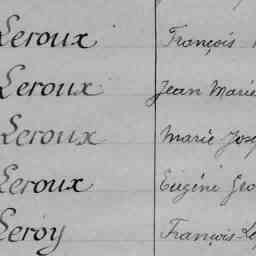 Leroux François
Leroux Jean Marie
Leroux Marie
Leroux Eugène
Leroy François